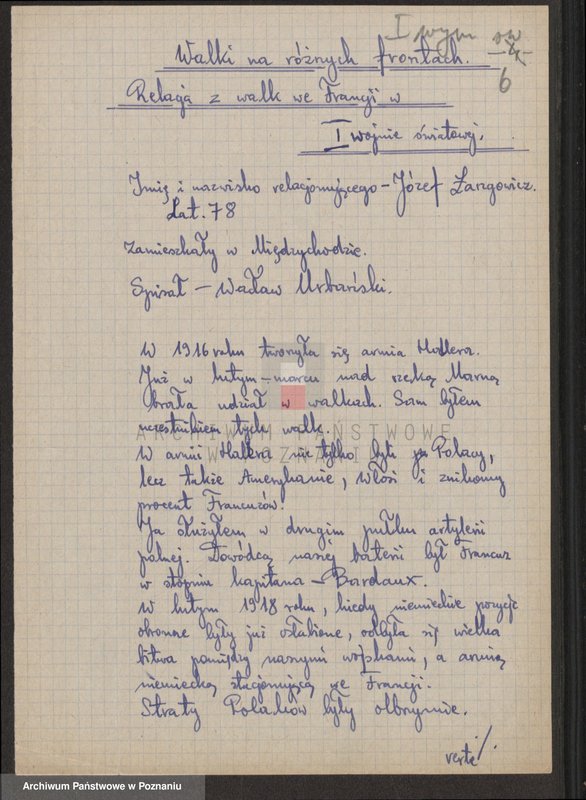 I wojn. św
6
Walki na różnych frontach.
Relacja z walk we Francji w
I wojnie światowej.
Imię i nazwisko relacjonującego – Józef Łazgowicz.
Lat. 78
Zamieszkały w Międzychodzie.
Spisał – Wacław Urbański.
W 1916 roku tworzyła się armia Hallera.
Już w lutym – marcu nad rzeką Marną
brała udział w walkach. Sam byłem
uczestnikiem tych walk.
W armii Hallera nie tylko byli Polacy,
lecz także Amerykanie, Włosi i znikomy
procent Francuzów.
Ja służyłem w drugim pułku artylerii
polnej. Dowódcą naszej baterii był Francuz
w stopniu kapitana – Bardaux.
W lutym 1918 roku, kiedy niemieckie pozycje
obronne były już osłabione, odbyła się wielka
bitwa pomiędzy naszymi wojskami, a armią
niemiecką stacjonującą we Francji.
Straty Polaków były olbrzymie.
verte /.
ARCHIWUM PAŃSTWOWE
W POZNANIU
Archiwum Państwowe w Poznaniu